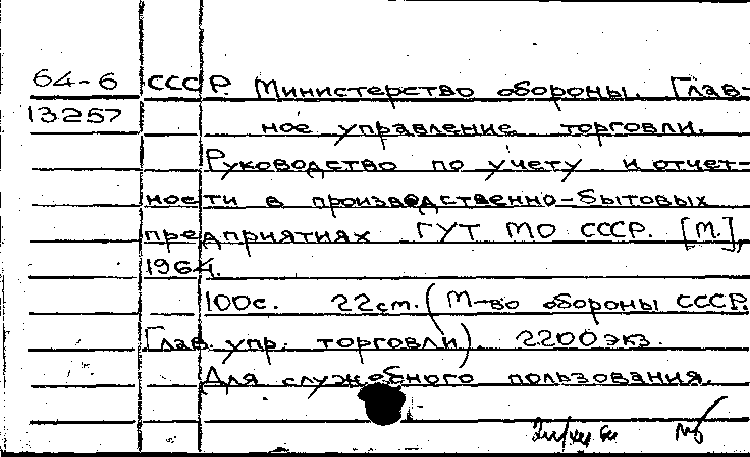 64-6 СССР. Министерство обороны. Глав-
13257 ное управление торговли.
Руководство по учету и отчет-
ности в производственно-бытовых
предприятиях ГУТ МО СССР. [М.],
1964.
100с. 22см. (М-во обороны СССР.
Глав. упр. торговли). 2200 экз.
Для служебного пользования.